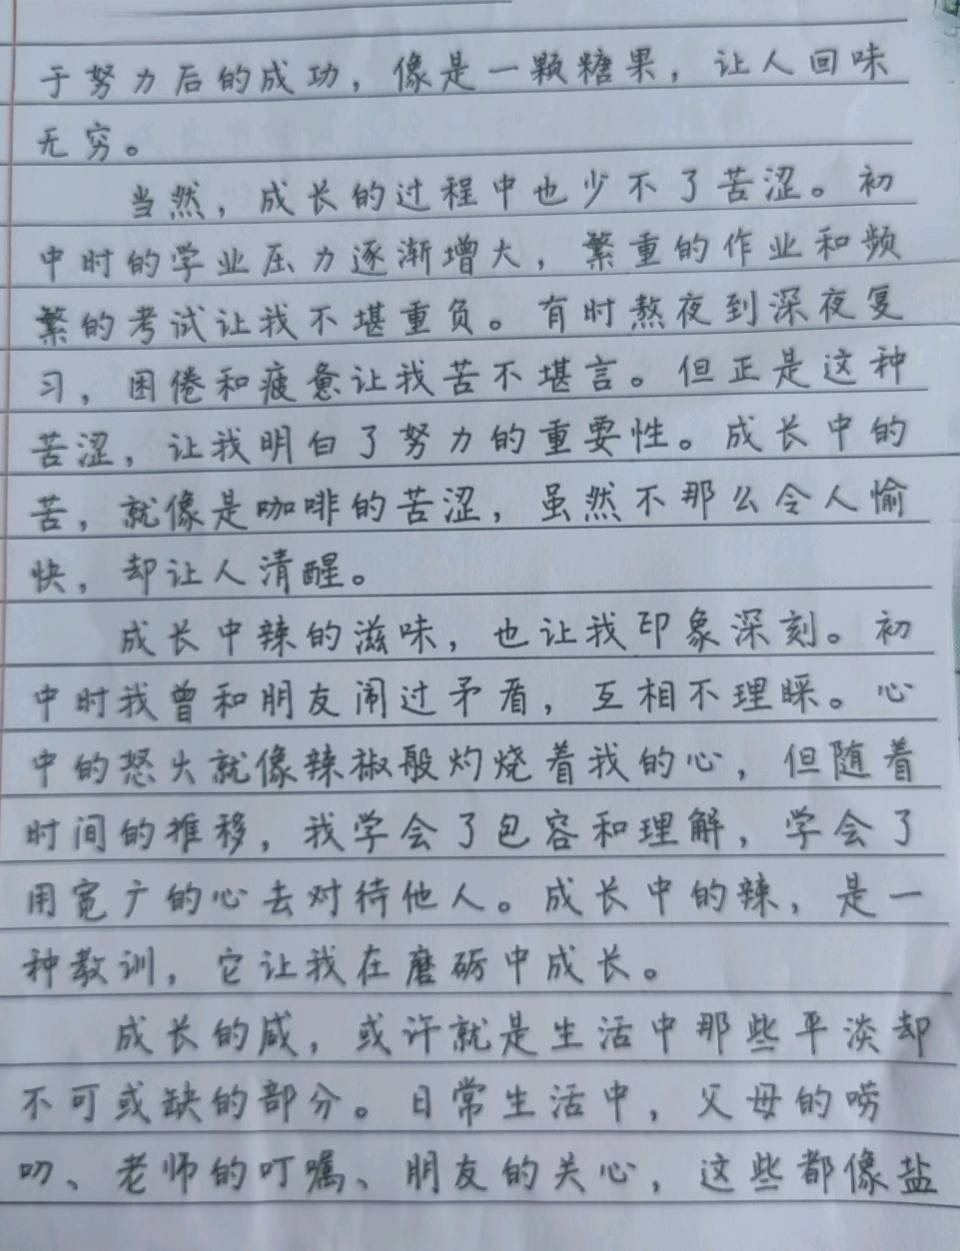 于努力后的成功，像是一颗糖果，让人回味
无穷。
当然，成长的过程中也少不了苦涩。初
中时的学业压力逐渐增大，繁重的作业和频
繁的考试让我不堪重负。有时熬夜到深夜复
习，困倦和疲惫让我苦不堪言。但正是这种
苦涩，让我明白了努力的重要性。成长中的
苦，就像是咖啡的苦涩，虽然不那么令人愉
快，却让人清醒。
成长中辣的滋味，也让我印象深刻。初
中时我曾和朋友闹过矛盾，互相不理睬。心
中的怒火就像辣椒般灼烧着我的心，但随着
时间的推移，我学会了包容和理解，学会了
用宽广的心去对待他人。成长中的辣，是一
种教训，它让我在磨砺中成长。
成长的咸，或许就是生活中那些平淡却
不可或缺的部分。日常生活中，父母的唠
叨、老师的叮嘱、朋友的关心，这些都像盐